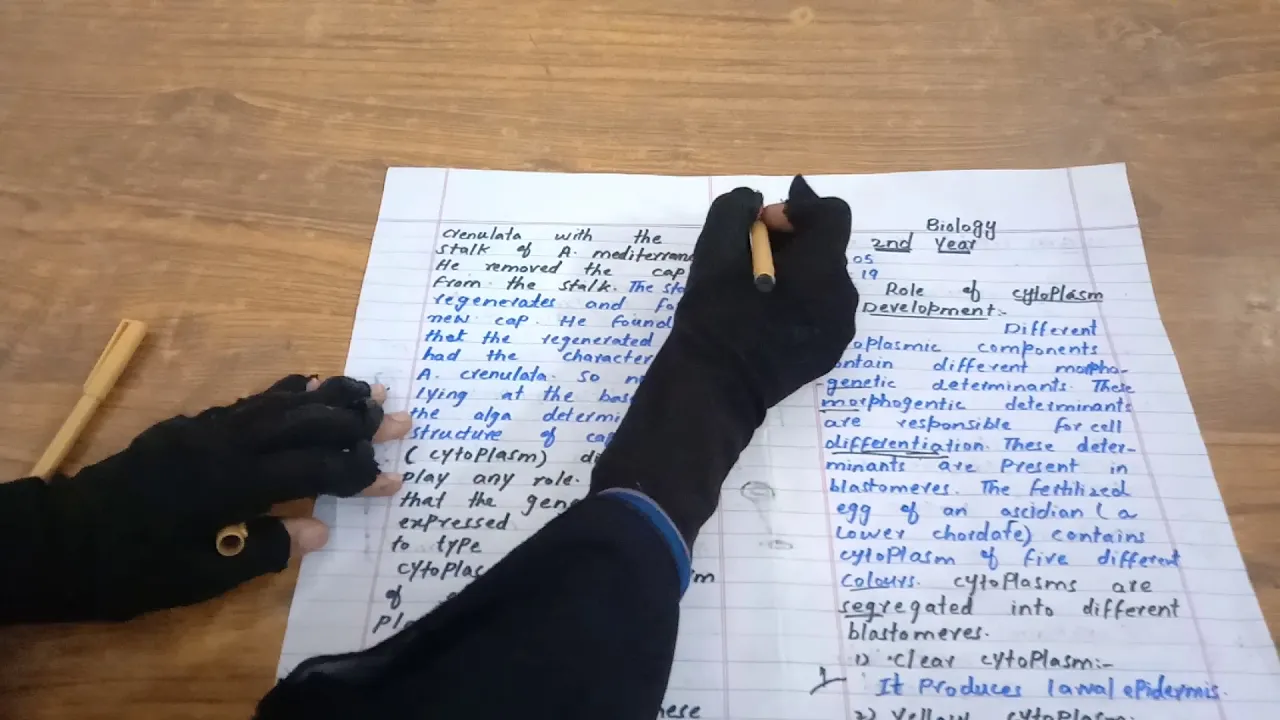 crenulata with the
stalk of A. mediterran
He removed the cap
from the stalk. The
regenerates and
new cap. He found
that the regenerated
had the character
A. crenulata. So
lying at the
the alga determi
structure of
(cytoplasm)
play any role.
that the
expressed
to type
of
Biology
2nd Year
05
19
Role of cytoplasm
Development:-
Different
oplasmic components
ontain different morpho-
genetic determinants. These
morphogentic determinants
are responsible for cell
differentiation. These deter-
minants are present in
blastomeres. The fertilized
egg of an ascidian (a
lower chordate) contains
cytoplasm of five different
colours. cytoplasms are
segregated into different
blastomeres.
1) Clear cytoplasm:-
It produces larval epidermis.
2) Yellow cytoplasm:-